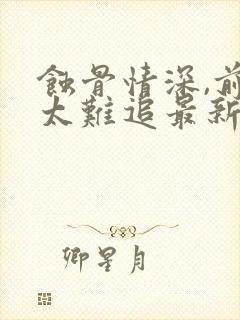 蝕骨情深,前
太難追最新
卿星月